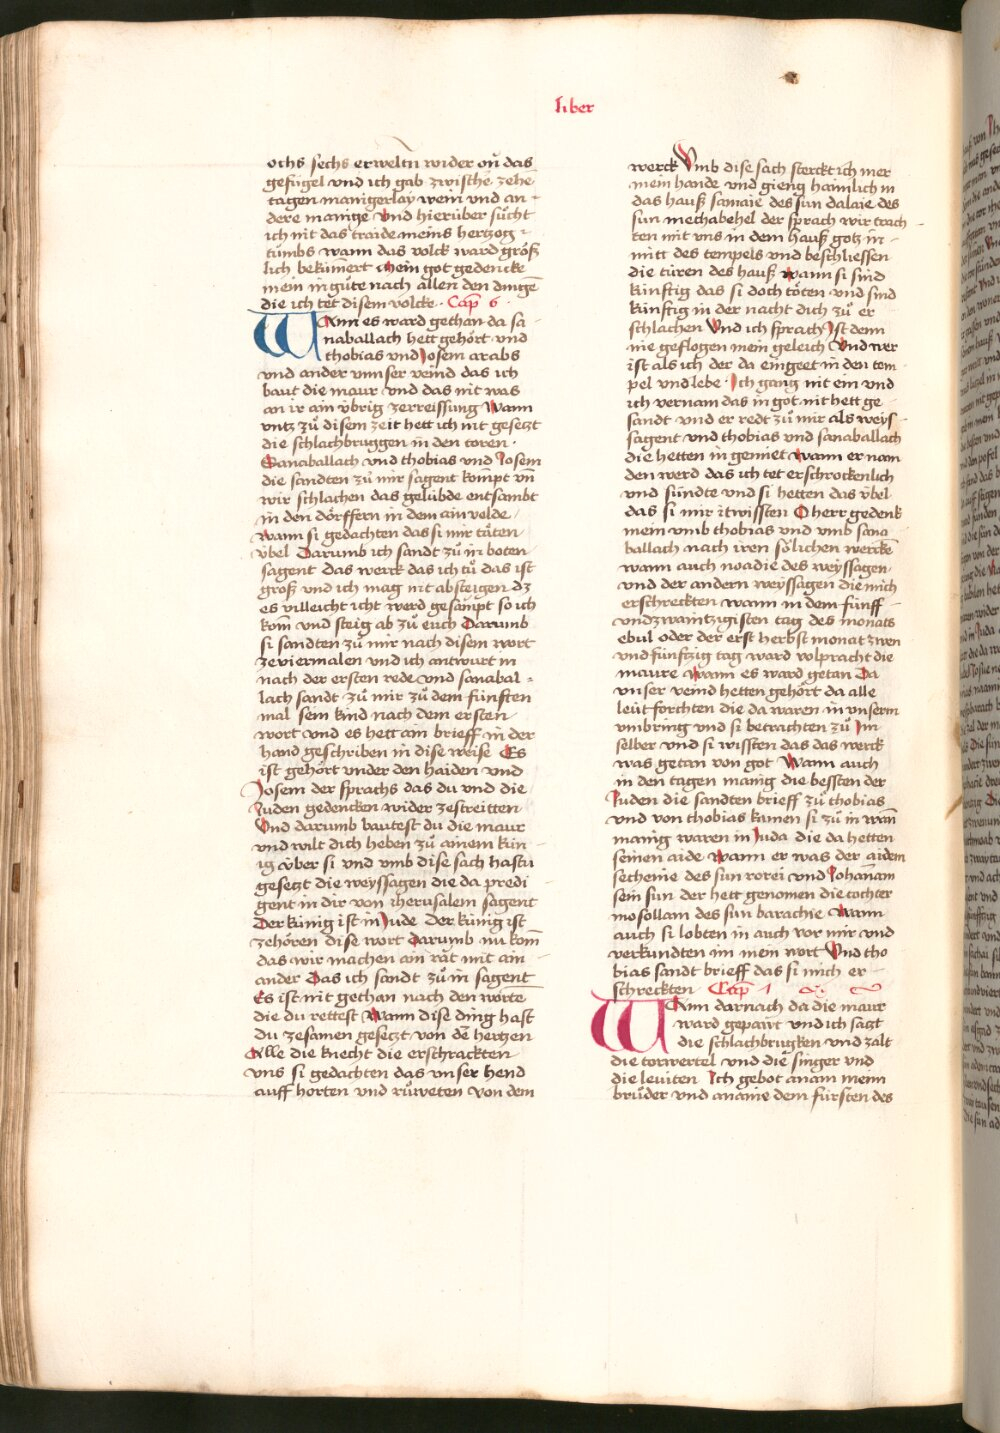 liber
ochs sechs erweltn wider on̄ das
gefügel vnd ich gab zwischē zehē
tagen manigerlay wein vnd an
dere manige Vnd hierüber sůcht
ich nit das traide meins hertzog
tůmbs wann das volck ward größ
lich bekūmert Mein got gedencke
mein in gůte nach allen den dingē
die ich tet disem volcke · Cap̄ 6 ·
WAnn es ward gethan da sa
naballach hett gehört vnd
thobias vnd Josem arabs
vnd ander vnnser veind das ich
baut die maur vnd das nit was
an ir ain v̈brig zerreissung Wann
vntz zů disem zeit hett ich nit gesetzt
die schlachbruggen in den toren ·
Sanaballach vnd thobias vnd Josem
die sandten zů mir sagent kompt vn̄
wir schlachen das gelübde entsambt
in den dörffern in dem ain velde
Wann si gedachten das si mir täten
v̈bel Darumb ich sandt zů in boten
sagent das werck das ich tů das ist
groß vnd ich mag nit absteigen dz
es villeicht icht werd gesāmpt so ich
kom vnd steig ab zů euch Darumb
si sandten zů mir nach disem wort
ze viermalen vnd ich antwurt in
nach der ersten rede vnd sanabal
lach sandt zů mir zů dem fünften
mal sein kind nach dem ersten
wort vnd es hett ain brieff in der
hand geschriben in dise weise Es
ist gehört vnder den haiden vnd
Josem der sprachs das du vnd die
Juden gedencken wider zestreitten
Vnd darumb bautest du die maur
vnd wilt dich heben zů ainem kün
ig v̈ber si vnd vmb dise sach hastu
gesetzt die weyssagen die da predi
gent in dir von iherusalem sagent
Der künig ist in Jude der künig ist
zehören dise wort Darumb nu kom̄
das wir machen ain rät mit ain
ander Das ich sandt zů in sagent
Es ist nit gethan nach den worte
die du rettest Wann dise ding hast
du zesamen gesetzt von dē hertzen
Alle die knecht die erschrackten
vns si gedachten das vnser hend
auff horten vnd růweten von dem
werck Vmb dise sach sterckt ich mer
mein hande vnd gieng haimlich in
das hauß samaie des sun dalaie des
sun mechabehel der sprach wir trach
ten mit vns in dem hauß gotz in
mitt des tempels vnd beschliessen
die türen des hauß Wann si sind
künftig das si doch töten vnd sind
künftig in der nacht dich zů er
schlachen Vnd ich sprach Ist denn
nie geflogen mein geleich Vnd wer
ist als ich der da eingeet in den tem
pel vnd lebe · Ich gang nit ein vnd
ich vernam das in got nit hett ge
sandt vnd er redt zů mir als weys
sagent vnd thobias vnd sanaballach
die hetten in gemiet Wann er nam
den werd das ich tet erschrockenlich
vnd sündte vnd si hetten das v̈bel
das si mir itwissten O herr gedenk
mein vmb thobias vnd vmb sana
ballach nach iren sölichen wercke
wann auch noadie des weyssagen
vnd der andern weyssagen die mich
erschreckten wann in dem fünff
vndzwaintzigisten tag des monats
ebul oder der erst herbst monat zwen
vnd fünftzig tag ward volpracht die
maure Wann es ward getan Da
vnser veind hetten gehört da alle
leüt forchten die da waren in vnserm
vmbring vnd si betrachten zů Im
selber vnd si wissten das das werck
was getan von got Wann auch
in den tagen manig die bessten der
Juden die sandten brieff zů thobias
vnd von thobias kamen si zů in wan̄
manig waren in Juda die da hetten
seinen aide Wann er was der aidem
sechenie des sun rorei vnd Johanam
sein sun der hett genomen die tochter
mosollam des sun barachie Wann
auch si lobten in auch vor mir vnd
verkundten im mein wort Vnd tho
bias sandt brieff das si mich er
schreckten Cap̄
WAnn darnach da die maur
ward gepawt vnd ich sagt
die schlachbrugken vnd zält
die torwertel vnd die singer vnd
die leuiten Ich gebot anam meim
brůder vnd ananie dem fürsten des